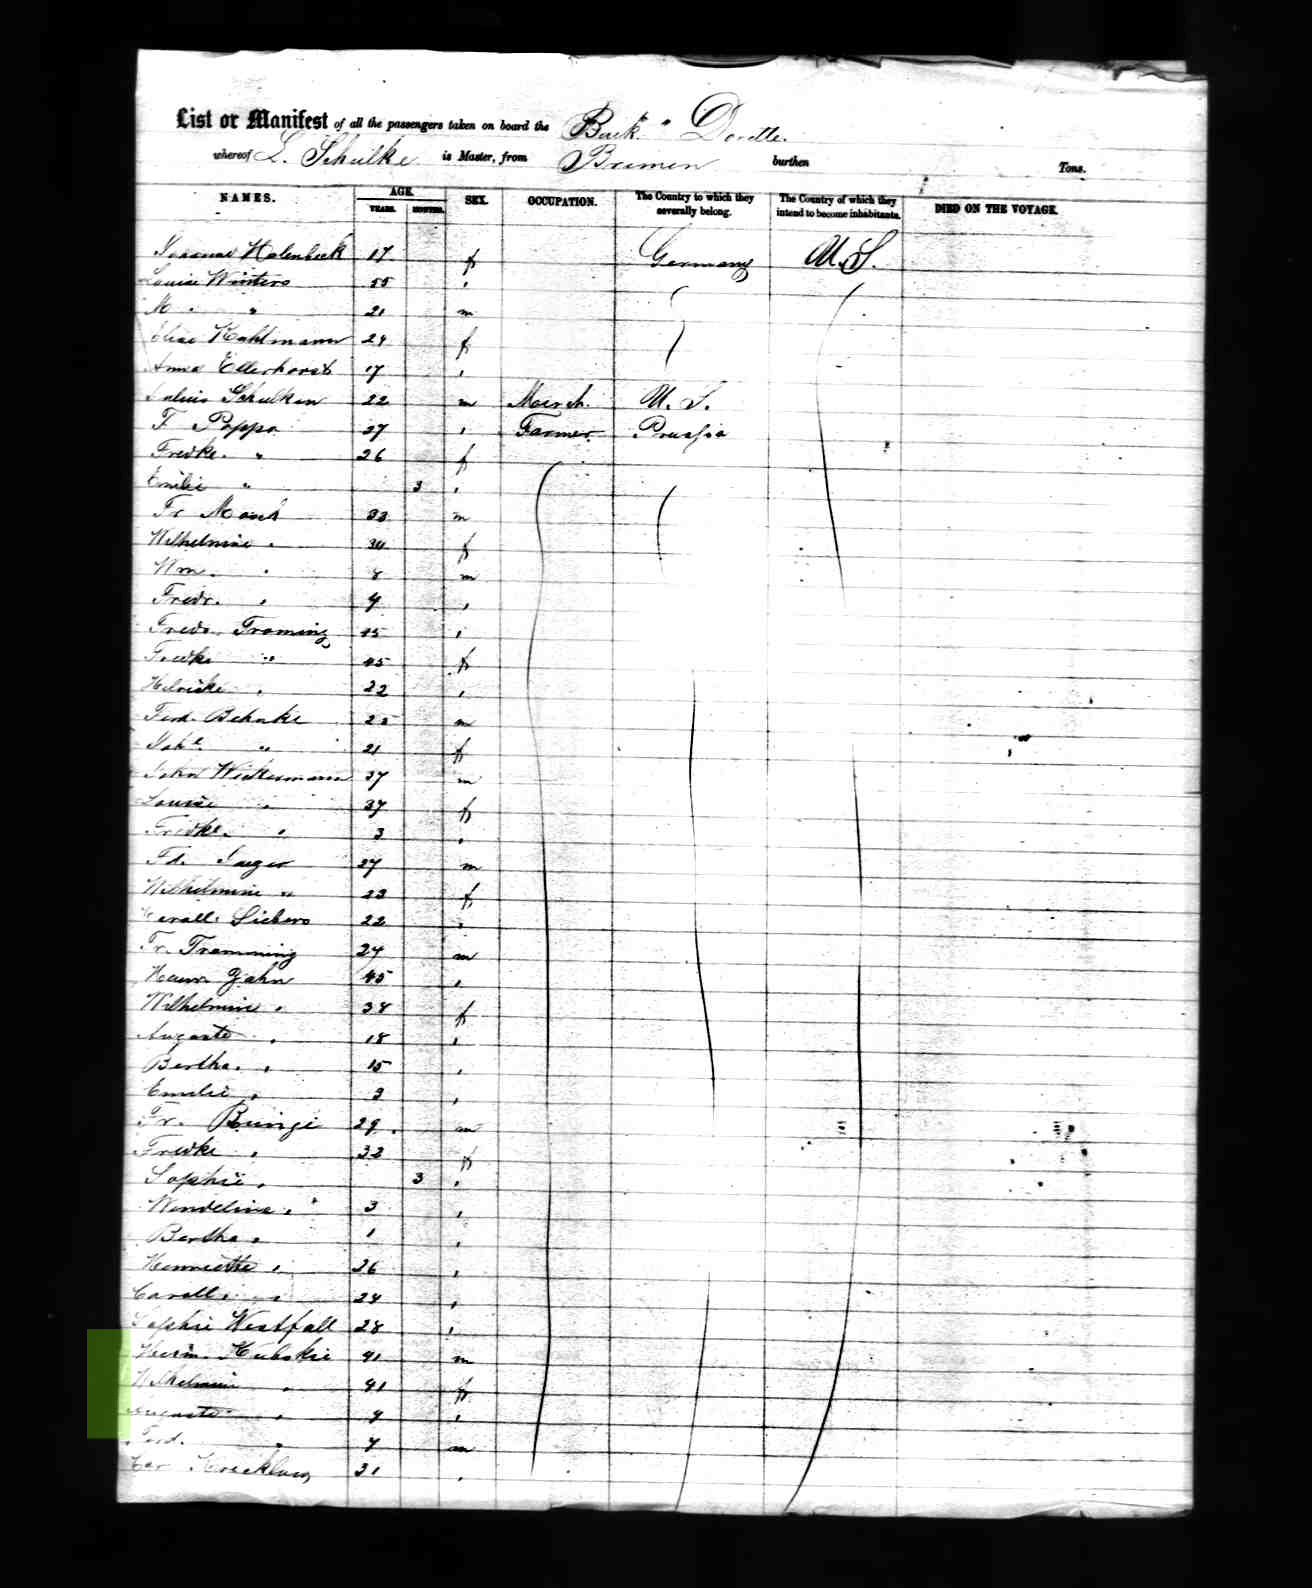 List or Manifest of all the passengers taken on board the Bark "Dorette.
whereof L. Schulke is Master, from Bremen burthen Tons.
NAMES. AGE. YEARS. MONTHS. SEX. OCCUPATION. The Country to which they severally belong. The Country of which they intend to become inhabitants. DIED ON THE VOYAGE.
Johanne Halenbeck 17 f Germany U.S.
Louise Winters 55 "
M " 21 m
Elise Kahlmann 24 f
Anna Ellerhorst 17 "
Julius Schulken 22 m Merch. U.S.
F. Poppe 27 " Farmer Prussia
Fredke. " 26 f
Emilie " 3 "
Fr Mosch 33 m
Wilhelmine " 30 f
Wm. " 8 m
Fredr. " 4 "
Fredr. Troming 45 "
Fredke " 45 f
22 "
Ferd. Behnke 25 m
" 21 f
John Wickermann 37 m
Louise " 37 f
Fredke. " 3 "
Fd. Jaeger 27 m
Wilhelmine " 23 f
Sievers 22 "
Fr. Tramming 24 m
Zahn 45 "
Wilhelmine " 38 f
Auguste " 18 "
Bertha " 15 "
Emilie " 3 "
Fr. Bunge 29 m
Fredke " 32 f
Sophie " 3 "
Wendeline " 3 "
Bertha " 1 "
Henriette " 26 "
" 24 "
Sophie Westfall 28 "
Herm. Hubskie 41 m
Wilhelmine " 41 f
Auguste " 9 "
Ferd. " 7 m
31 "